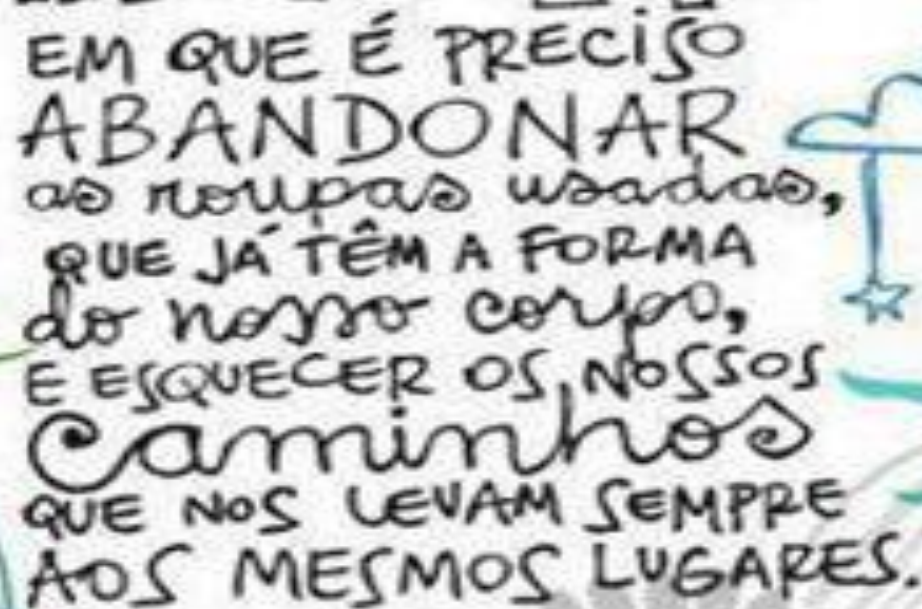 EM QUE É PRECISO
ABANDONAR
as roupas usadas,
QUE JÁ TÊM A FORMA
do nosso corpo,
E ESQUECER OS NOSSOS
caminhos
QUE NOS LEVAM SEMPRE
AOS MESMOS LUGARES.